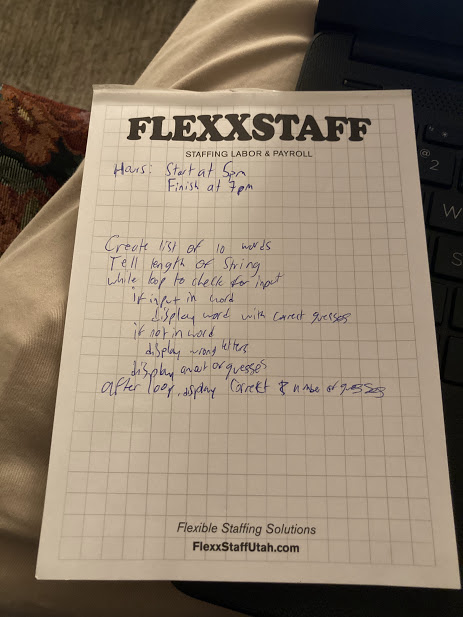 FLEXXSTAFF
STAFFING LABOR & PAYROLL
Hours: Start at 5pm
Finish at 7pm
Create list of 10 words
Tell length of String
while loop to check for input
if input in word
display word with correct guesses
if not in word
display wrong letters
display amount of guesses
after loop, display correct & number of guesses
Flexible Staffing Solutions
FlexxStaffUtah.com
@
2
W
S